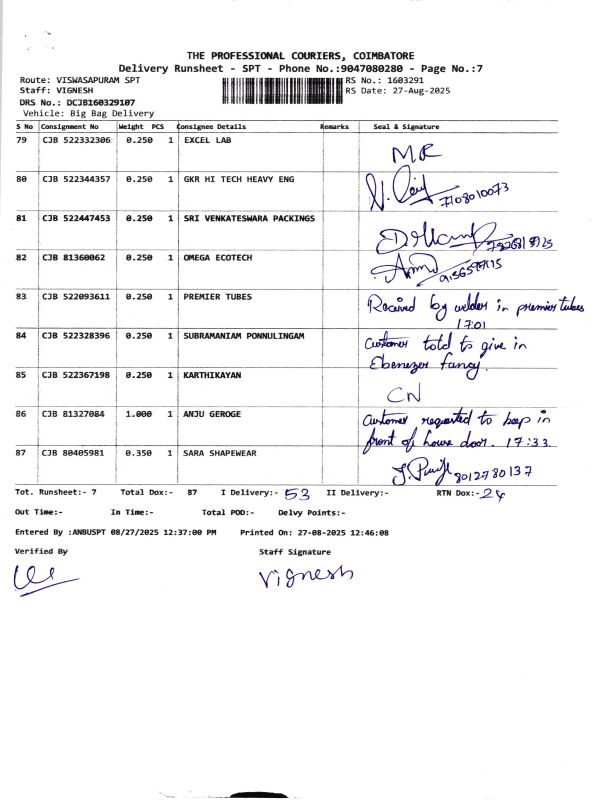 THE PROFESSIONAL COURIERS, COIMBATORE
Delivery Runsheet - SPT - Phone No.:9047080280 - Page No.:7
Route: VISWASAPURAM SPT
RS No.: 1603291
Staff: VIGNESH
RS Date: 27-Aug-2025
DRS No.: DCJB160329107
Vehicle: Big Bag Delivery
S No Consignment No Weight PCS Consignee Details Remarks Seal & Signature
79 CJB 522332306 0.250 1 EXCEL LAB
MR
80 CJB 522344357 0.250 1 GKR HI TECH HEAVY ENG
7108010073
81 CJB 522447453 0.250 1 SRI VENKATESWARA PACKINGS
82 CJB 81360062 0.250 1 OMEGA ECOTECH
83 CJB 522093611 0.250 1 PREMIER TUBES
Received by welder in premier tubes
17:01
84 CJB 522328396 0.250 1 SUBRAMANIAM PONNULINGAM
Customer told to give in
Ebenezer fancy.
85 CJB 522367198 0.250 1 KARTHIKAYAN
CN
86 CJB 81327084 1.000 1 ANJU GEROGE
Customer requested to keep in
front of house door. 17:33
87 CJB 80405981 0.350 1 SARA SHAPEWEAR
8012780137
Tot. Runsheet:- 7 Total Dox:- 87 I Delivery:- 53 II Delivery:- RTN Dox:- 24
Out Time:- In Time:- Total POD:- Delvy Points:-
Entered By :ANBUSPT 08/27/2025 12:37:00 PM Printed On: 27-08-2025 12:46:08
Verified By Staff Signature
Vignesh